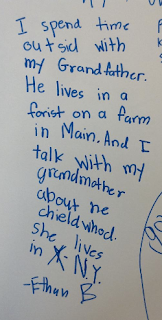 I spend time
outsid with
my Grandfather.
He lives in a
forist on a farm
in Main. And I
talk with my
grandmother
about he
chieldwhod.
she lives
in N.Y.
-Ethan B